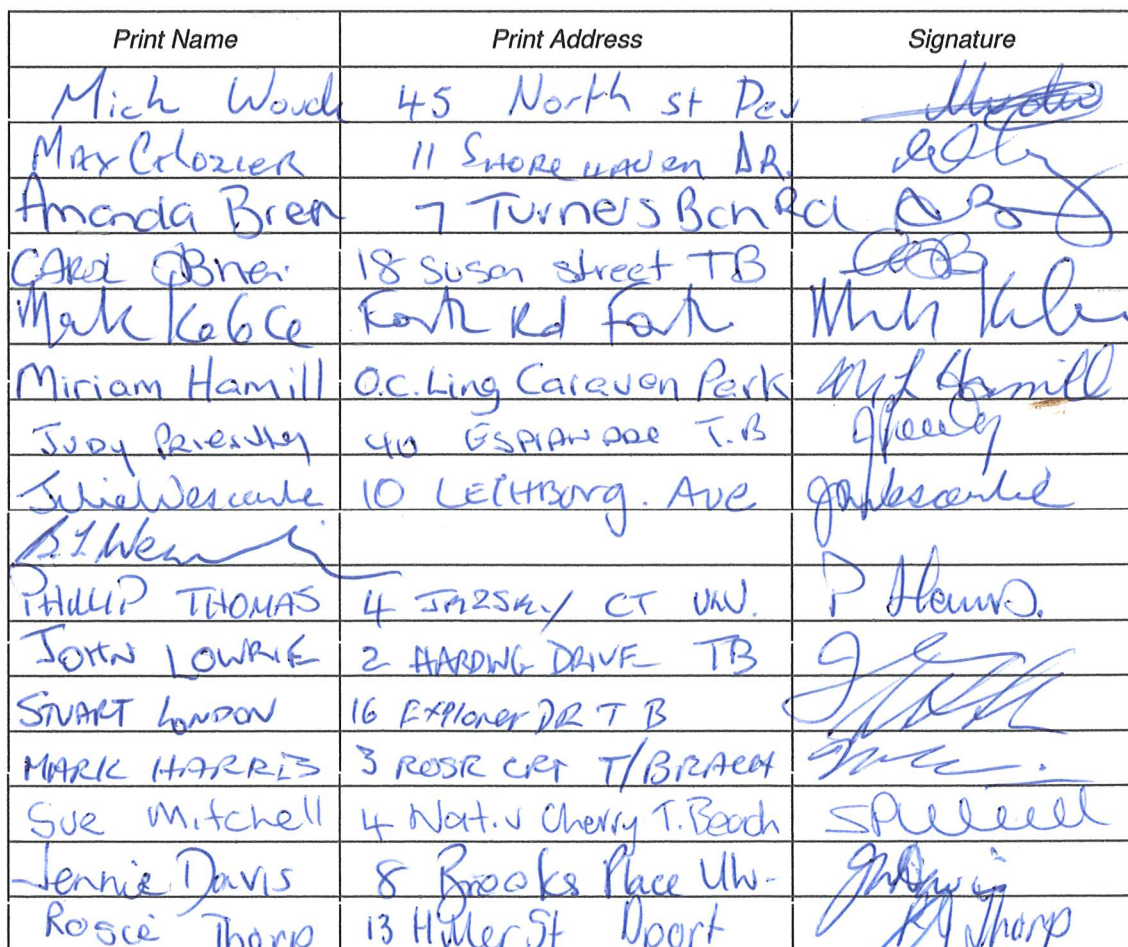 Print Name Print Address Signature
Mich Woud 45 North st Dev
Max Crozier 11 SHOREHAVEN DR.
Amanda Bren 7 Turners Bch Rd
CAROL OBrien 18 Susan street TB
Mark Forth Rd Forth
Miriam Hamill O.C. Ling Caravan Park M L Hamill
Judy Priestley 40 ESPLANADE T.B
Julie Wescombe 10 LEITHBORG. AVE

PHILLIP THOMAS 4 CT ULV. P Thomas.
JOHN LOWRIE 2 HARDING DRIVE TB
STUART LONDON 16 Explorer DR T B
MARK HARRIS 3 ROSE CRT T/BEACH
Sue Mitchell 4 Nativ Cherry T. Beach
Jennie Davis 8 Brooks Place Ulv-
Rosie Thorp 13 Hiller St Dport Thorp